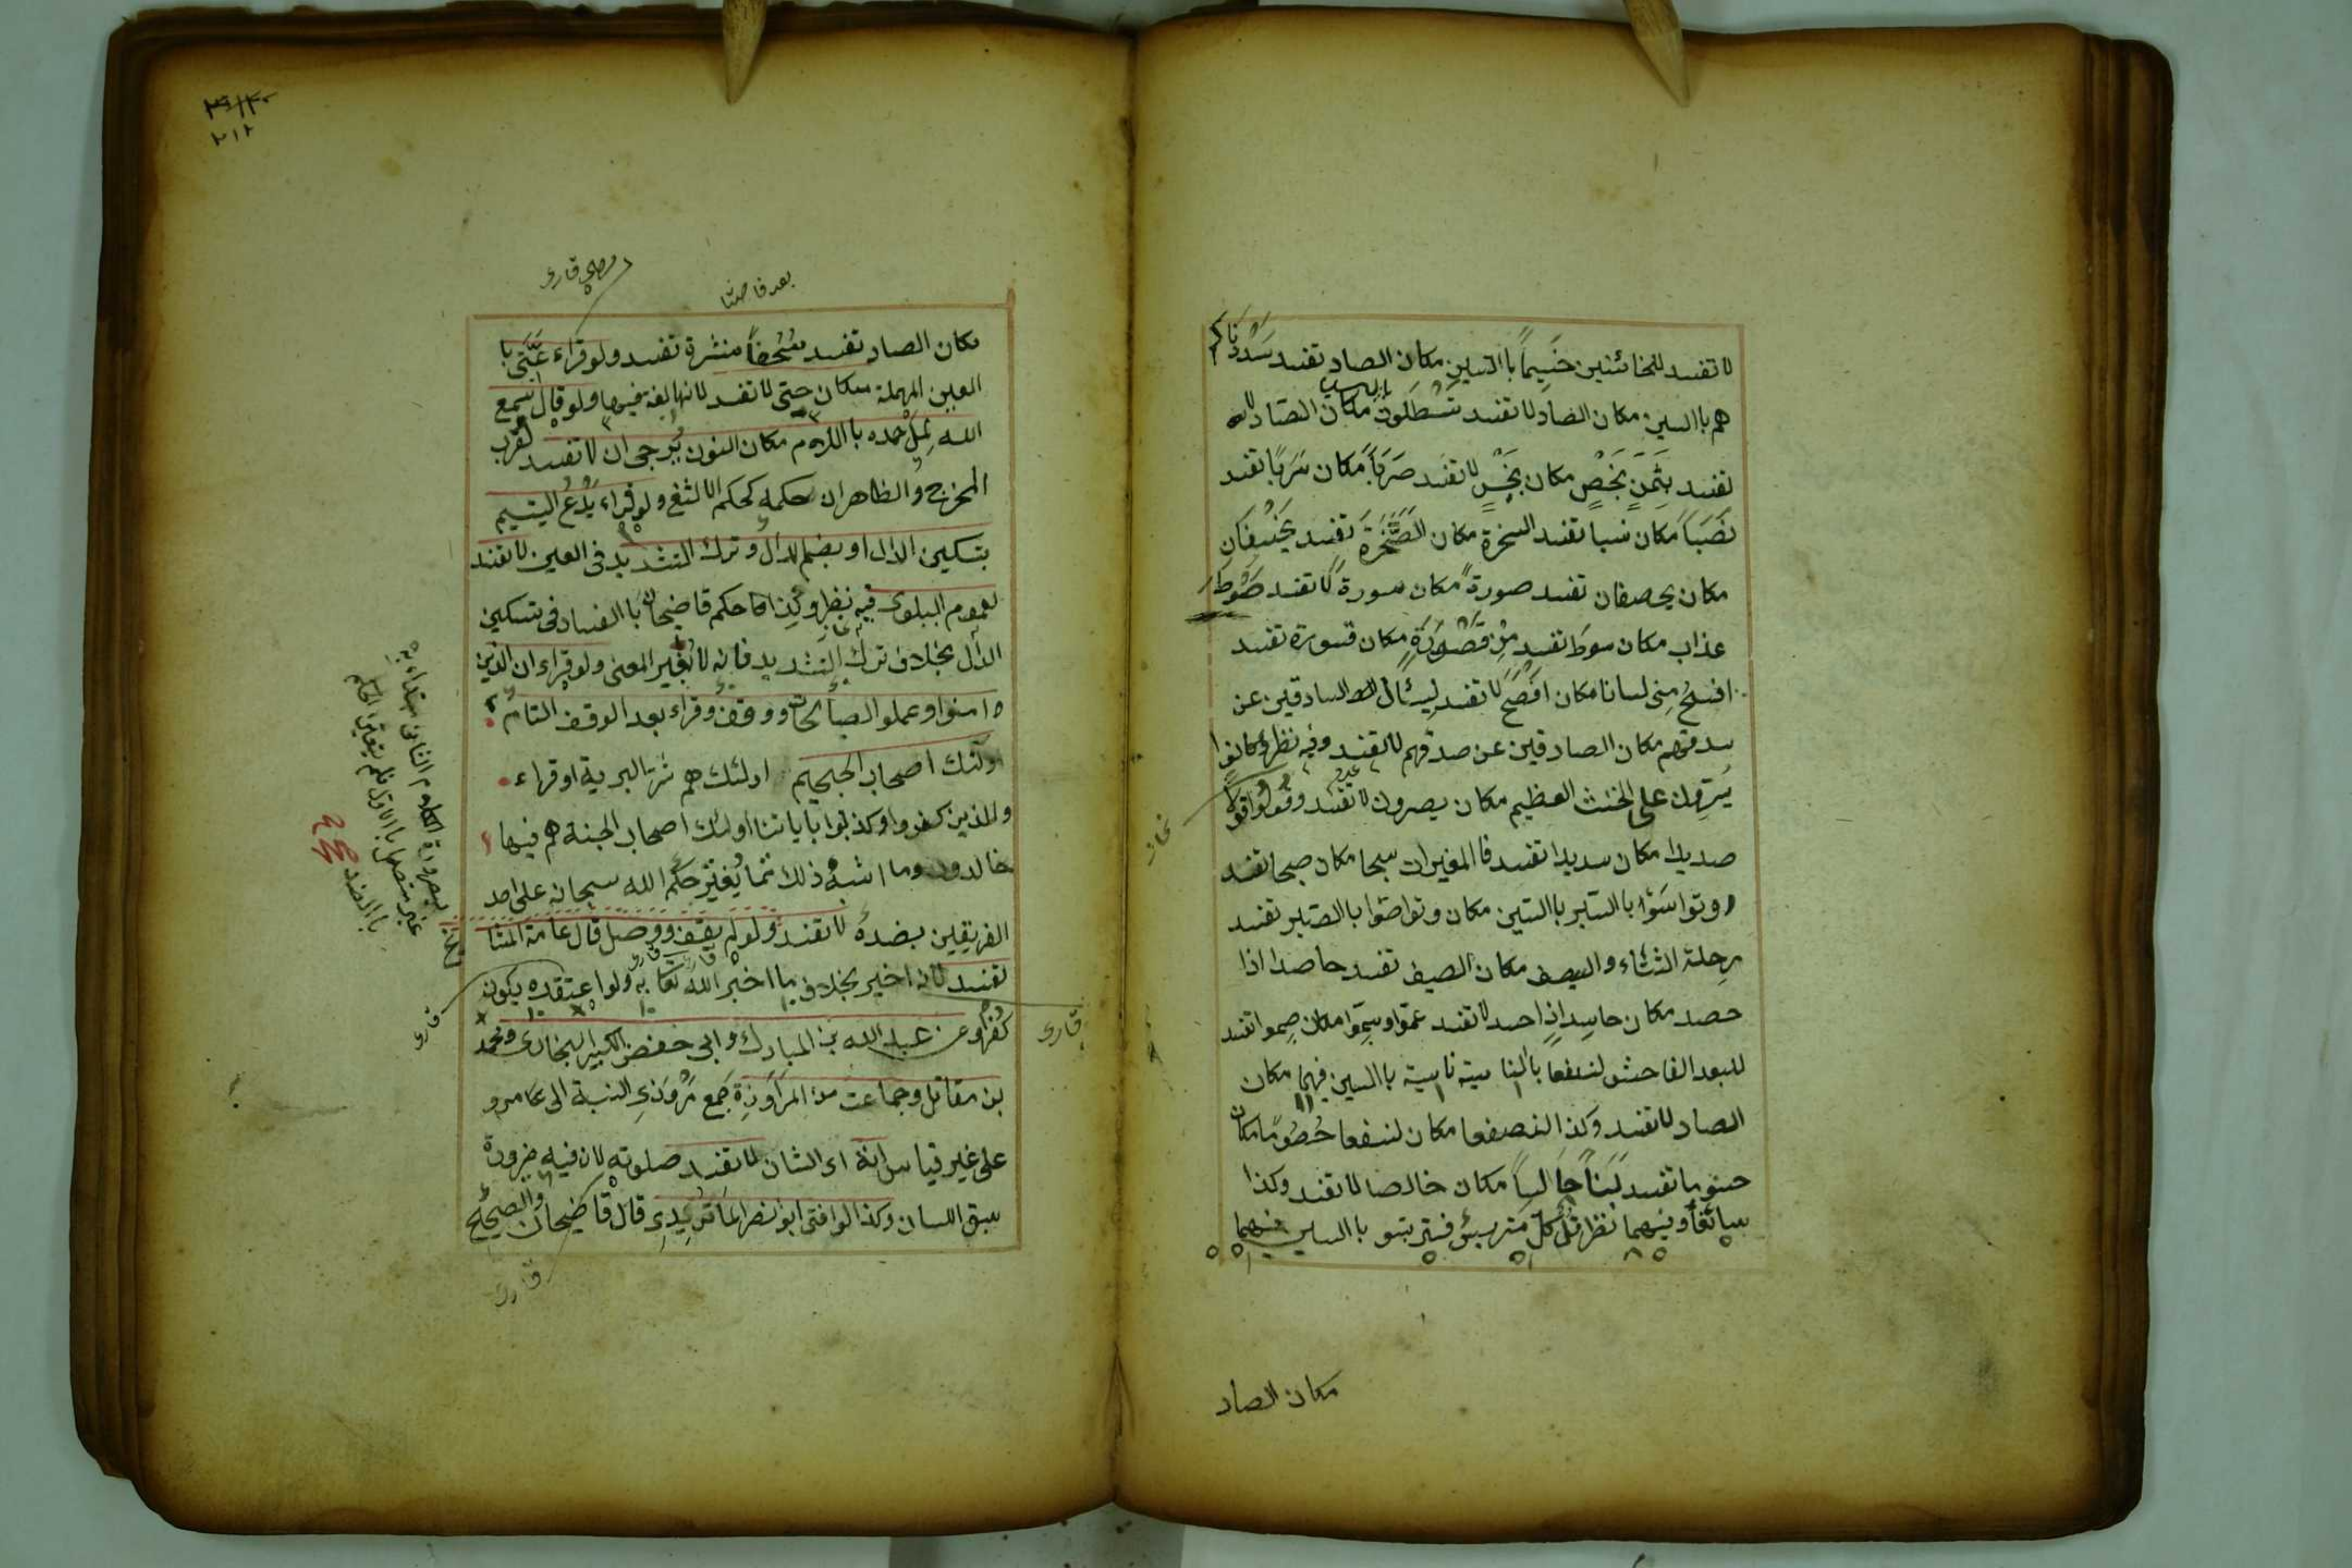 لا تفسد للخائنين خسيماً باالسين مكان الصاد تفسد سددناكم
هم باالسين مكان الصاد لا تفسد تسطلون باالسين مكان الصاد لا
تفسد بثمنٍ بخصٍ مكان بخسٍ لا تفسد صرباً مكان سرباً تفسد
نصباً مكان نسبا تفسد السخرة مكان الصخرة تفسد يخسفان
مكان يخصفان تفسد صورة مكان سورة لا تفسد صوط
عذاب مكان سوط تفسد من قصورةٍ مكان قسورة تفسد
افسح منى لسانا مكان افصح لا تفسد ليسئال السادقين عن
سدقهم مكان الصادقين عن صدقهم لا تفسد وفيه نظر وكانوا
يسرون على الحنث العظيم مكان يصرون لا تفسد وقولوا قولا
صديدا مكان سديدا تفسد فا المغيرات سبحا مكان صبحا تفسد
وتواسوا باالسبر باالسين مكان وتواصوا باالصبر تفسد
رحلة الشتاء والسيف مكان الصيف تفسد حاصدا اذا
حصد مكان حاسدٍ اذا حسد لا تفسد عموا وسموا مكان صموا تفسد
للبعد الفاحش لنسفعا باالناسية ناسية باالسين فيهما مكان
الصاد لا تفسد وكذا لنصفعا مكان لنسفعا حصوما مكان
حسوما تفسد لبناً خالساً مكان خالصا لا تفسد وكذا
سائغا وفيهما نظر قل كل متربس فتربسو باالسين فيهما
مكان الصاد
بعد فاحشا
قارى
مكان الصاد تفسد سحفاً منشرة تفسد ولو قراء عتى با
العين المهملة مكان حتى لا تفسد لانها لغة فيها ولو قال سمع
الله لمل حمده باللام مكان النون يرجى ان لا تفسد لقرب
المخرج والظاهر ان حكمه كحكم الالثغ ولو قراء يدع اليتيم
بتسكين الدال او بضم الدال وترك التشديد فى العين لا تفسد
لعموم البلوى فيه نظر وكذا حكم قاضيخان باالفساد فى تسكين
الدال بخلاف ترك التشديد فانه لا يغير المعنى ولو قراء ان الذين
امنوا وعملوا الصالحات ووقف وقراء بعد الوقف التام
اولئك اصحاب الجحيم اولئك هم شر البرية او قراء
والذين كفروا وكذبوا باياتنا اولئك اصحاب الجنة هم فيها
خالدون وما اشبه ذلك مما يغير حكم الله سبحانه على احد
الفريقين بضده لا تفسد ولو لم يقف ووصل قال عامة المشا
يخ
تفسد لانه اخبر بخلاف ما اخبر الله تعا به ولو اعتقده يكون
كفرا وعن عبد الله بن المبارك وابى حفص الكبير البخارى ومحمد
بن مقاتل وجماعت من المراوزة جمع مروزى النسبة الى مرو
على غير قياس انه اى الشان لا تفسد صلوته لان فيه ضرورة
سبق اللسان وكذا لو افتى ابو نصر الماتريدى قال قاضيخان والصحيح
قارى
قارى
قارى